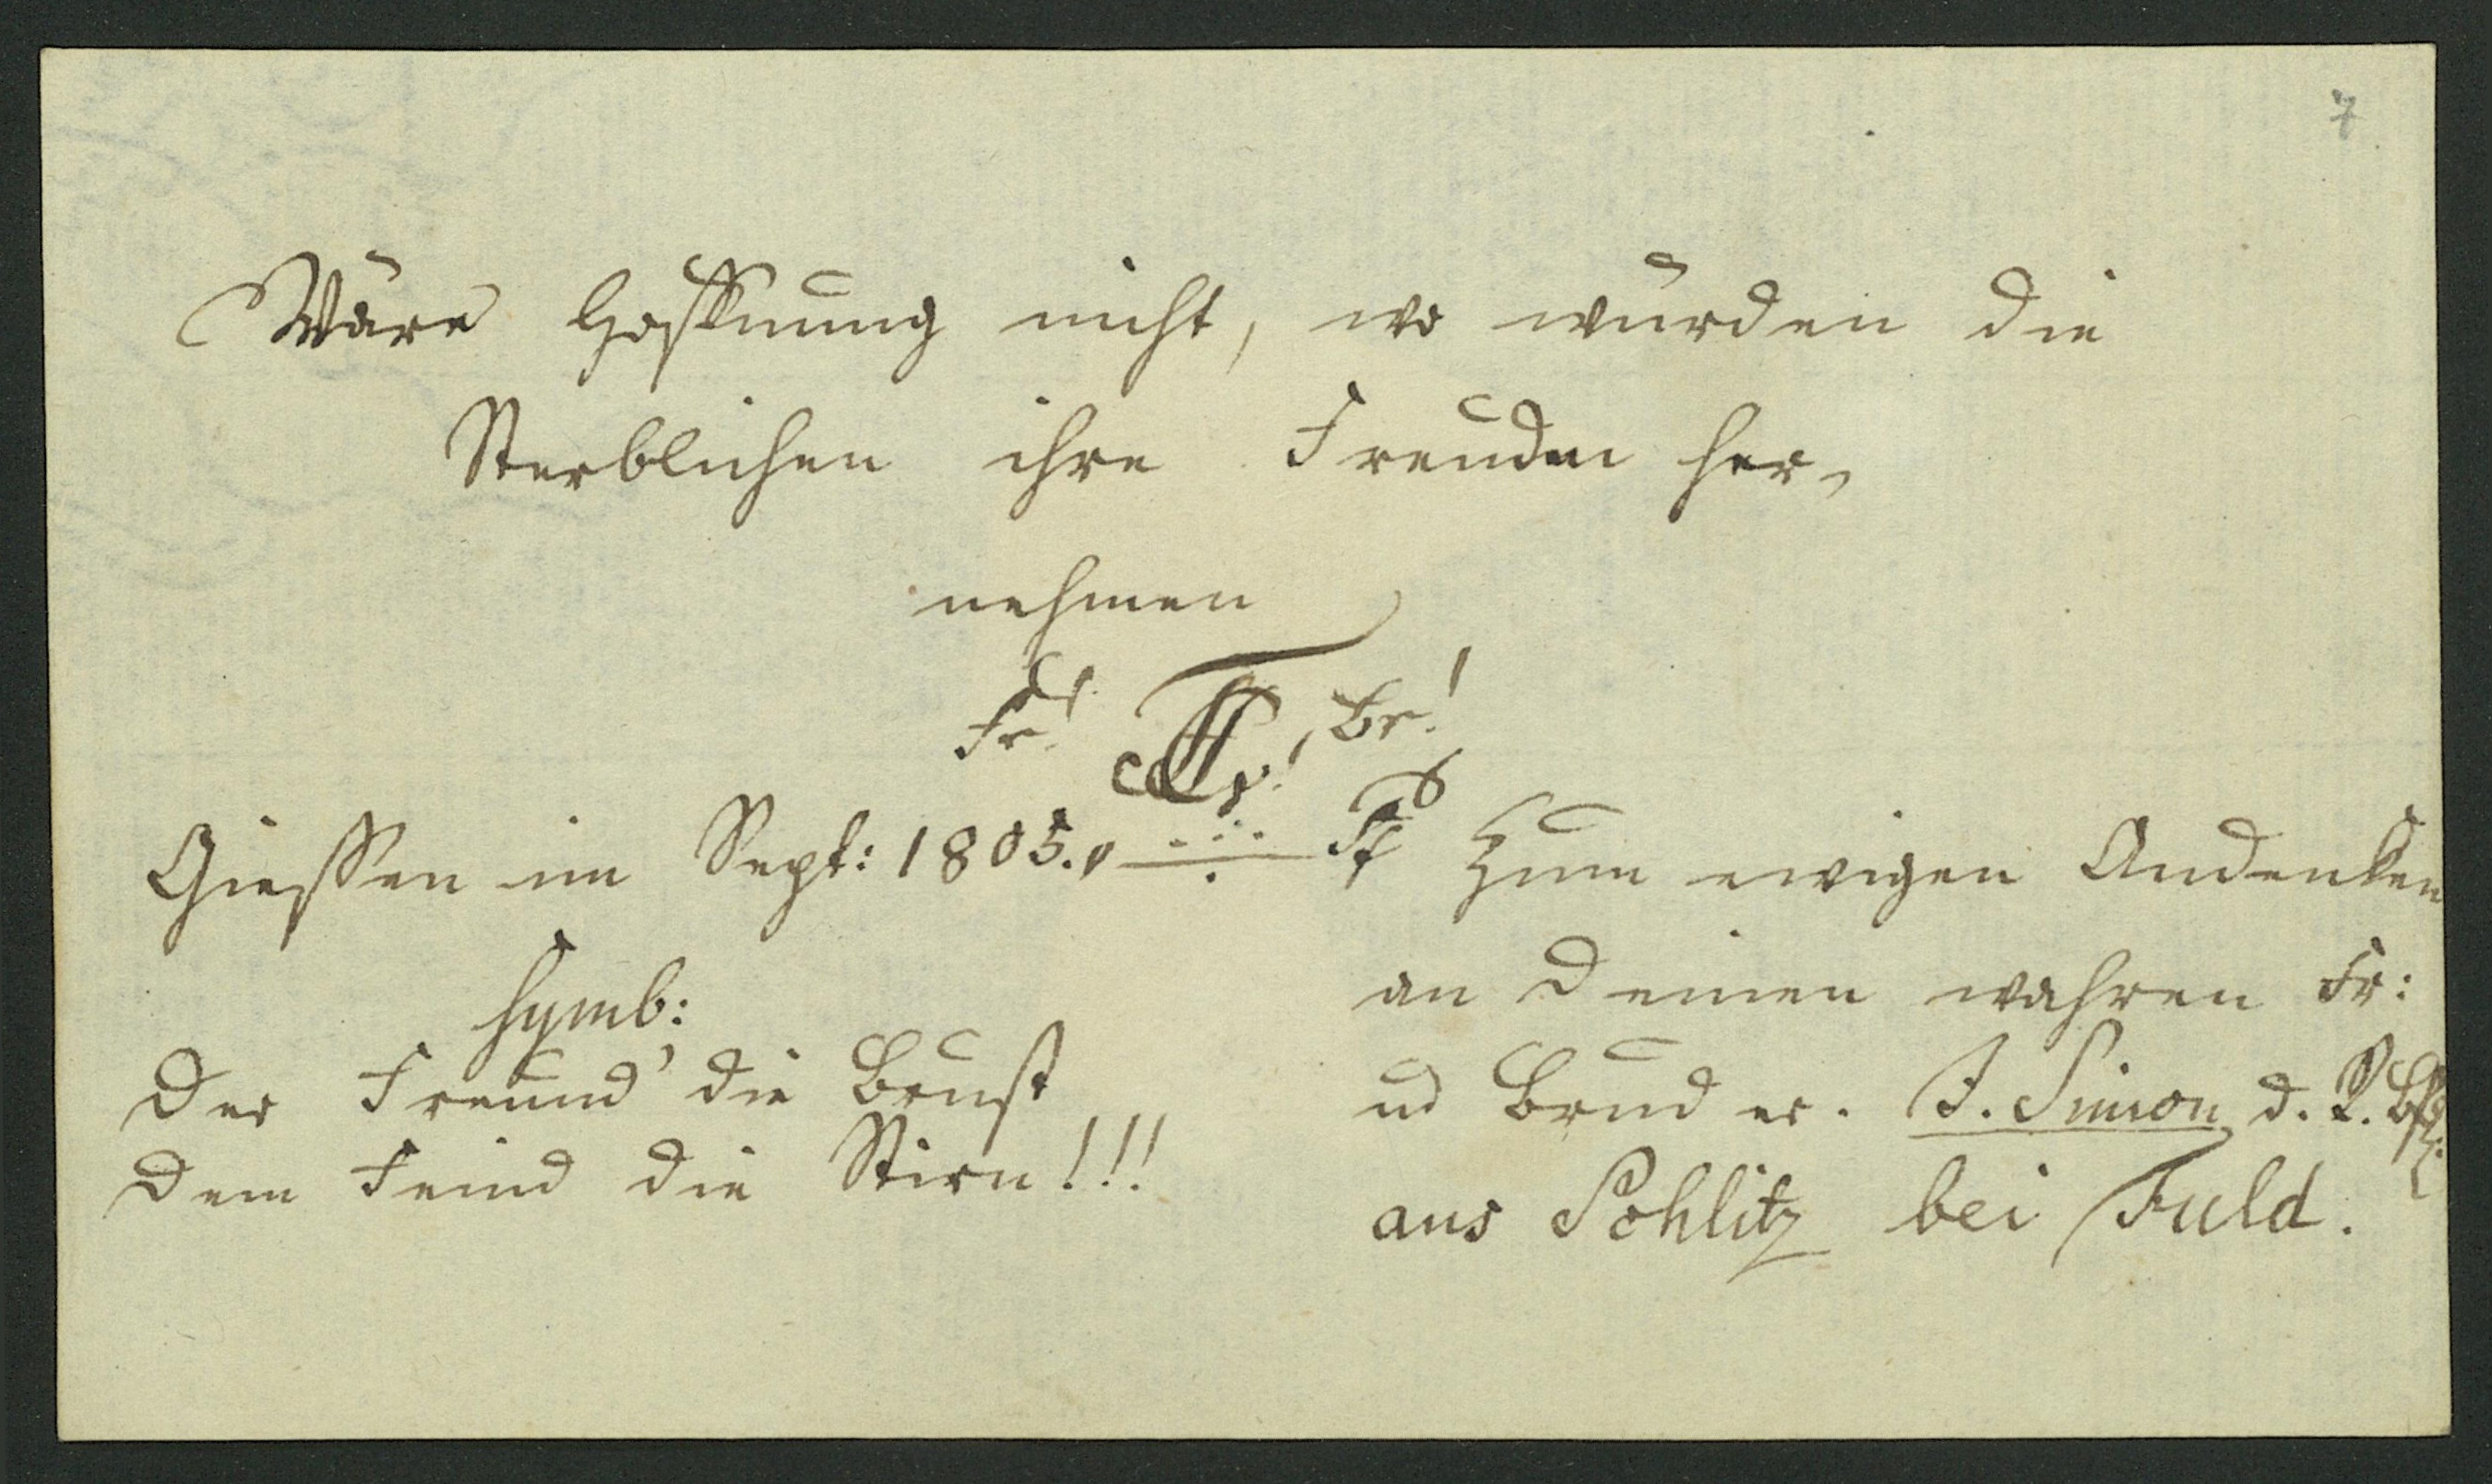 7
Wäre Hoffnung nicht, wo würden die
Sterblichen ihre Freuden her-
nehmen
Fr! Br!
Giessen im Sept: 1805.
Zum ewigen Andenken
an Deinen wahren Fr:
ud Bruder. J. Simon d. R. Bfl.
aus Schlitz bei Fuld.
Symb:
Der Freund' die Brust
Dem Feind die Stirn!!!